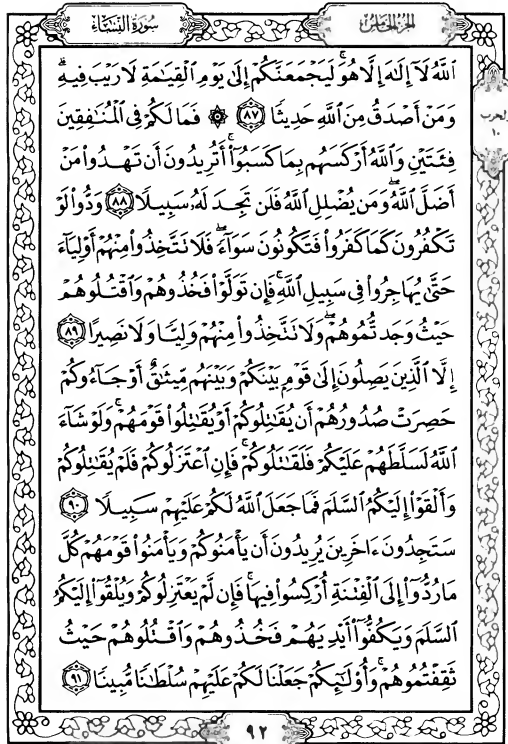 سُورَةُ النِّسَاءِ الجزء الخامس
ٱللَّهُ لَآ إِلَٰهَ إِلَّا هُوَۚ لَيَجْمَعَنَّكُمْ إِلَىٰ يَوْمِ ٱلْقِيَٰمَةِ لَا رَيْبَ فِيهِۗ
وَمَنْ أَصْدَقُ مِنَ ٱللَّهِ حَدِيثًا ٨٧ ۞ فَمَا لَكُمْ فِى ٱلْمُنَٰفِقِينَ
فِئَتَيْنِ وَٱللَّهُ أَرْكَسَهُم بِمَا كَسَبُوٓا۟ۚ أَتُرِيدُونَ أَن تَهْدُوا۟ مَنْ
أَضَلَّ ٱللَّهُۖ وَمَن يُضْلِلِ ٱللَّهُ فَلَن تَجِدَ لَهُۥ سَبِيلًا ٨٨ وَدُّوا۟ لَوْ
تَكْفُرُونَ كَمَا كَفَرُوا۟ فَتَكُونُونَ سَوَآءًۖ فَلَا تَتَّخِذُوا۟ مِنْهُمْ أَوْلِيَآءَ
حَتَّىٰ يُهَاجِرُوا۟ فِى سَبِيلِ ٱللَّهِۚ فَإِن تَوَلَّوْا۟ فَخُذُوهُمْ وَٱقْتُلُوهُمْ
حَيْثُ وَجَدتُّمُوهُمْۖ وَلَا تَتَّخِذُوا۟ مِنْهُمْ وَلِيًّا وَلَا نَصِيرًا ٨٩
إِلَّا ٱلَّذِينَ يَصِلُونَ إِلَىٰ قَوْمٍۭ بَيْنَكُمْ وَبَيْنَهُم مِّيثَٰقٌ أَوْ جَآءُوكُمْ
حَصِرَتْ صُدُورُهُمْ أَن يُقَٰتِلُوكُمْ أَوْ يُقَٰتِلُوا۟ قَوْمَهُمْۚ وَلَوْ شَآءَ
ٱللَّهُ لَسَلَّطَهُمْ عَلَيْكُمْ فَلَقَٰتَلُوكُمْۚ فَإِنِ ٱعْتَزَلُوكُمْ فَلَمْ يُقَٰتِلُوكُمْ
وَأَلْقَوْا۟ إِلَيْكُمُ ٱلسَّلَمَ فَمَا جَعَلَ ٱللَّهُ لَكُمْ عَلَيْهِمْ سَبِيلًا ٩٠
سَتَجِدُونَ ءَاخَرِينَ يُرِيدُونَ أَن يَأْمَنُوكُمْ وَيَأْمَنُوا۟ قَوْمَهُمْ كُلَّ
مَا رُدُّوٓا۟ إِلَى ٱلْفِتْنَةِ أُرْكِسُوا۟ فِيهَاۚ فَإِن لَّمْ يَعْتَزِلُوكُمْ وَيُلْقُوٓا۟ إِلَيْكُمُ
ٱلسَّلَمَ وَيَكُفُّوٓا۟ أَيْدِيَهُمْ فَخُذُوهُمْ وَٱقْتُلُوهُمْ حَيْثُ
ثَقِفْتُمُوهُمْۚ وَأُو۟لَٰٓئِكُمْ جَعَلْنَا لَكُمْ عَلَيْهِمْ سُلْطَٰنًا مُّبِينًا ٩١
الحزب
١٠
٩٢